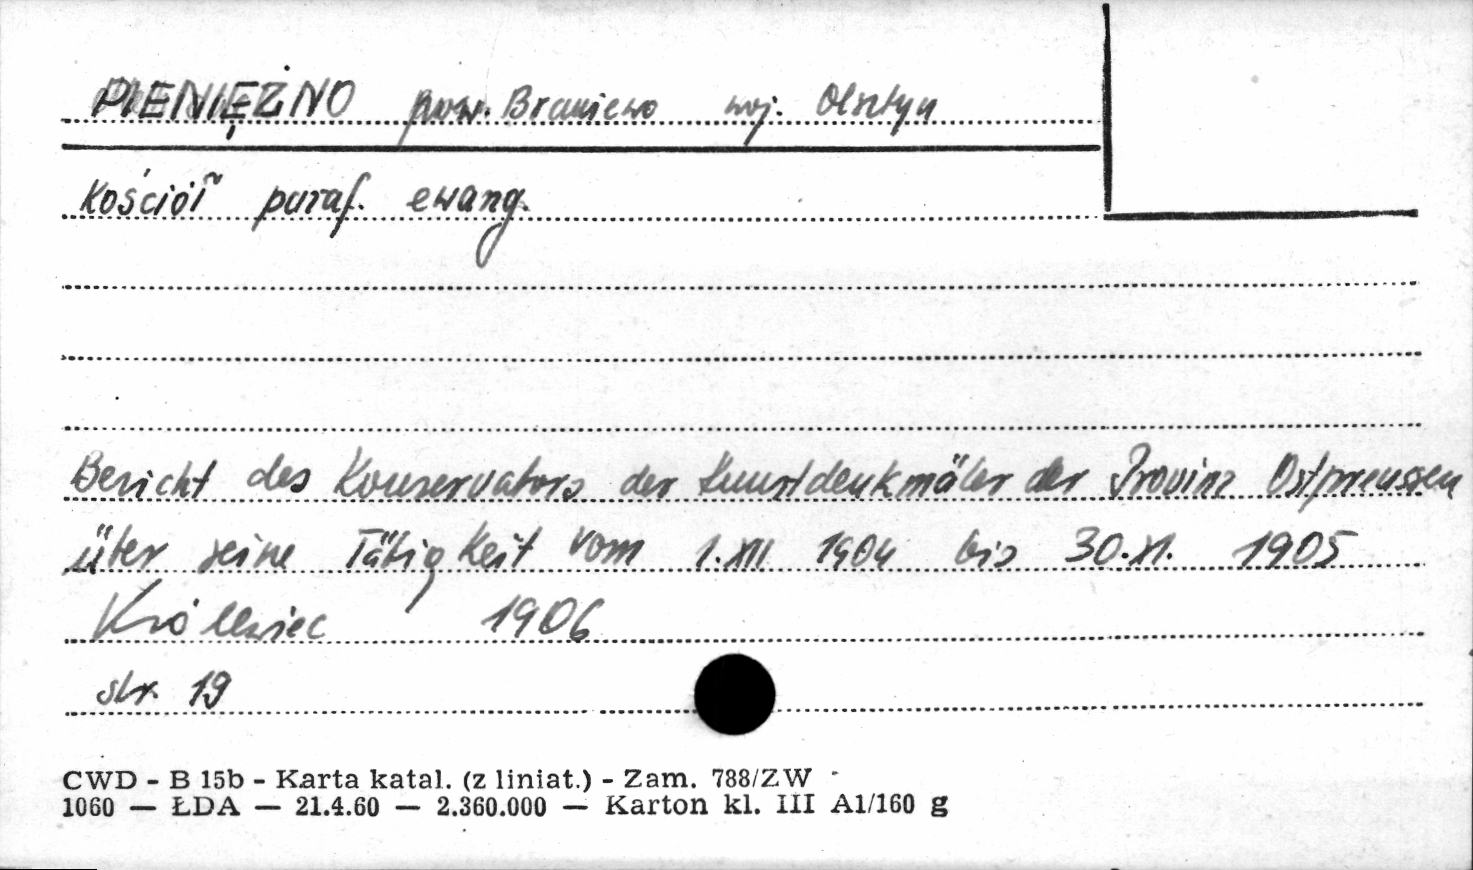 PIENIĘŻNO pow. Braniewo woj. Olsztyn
Kościół paraf. ewang.
Bericht des Konservators der Kunstdenkmäler der Provinz Ostpreussen
über seine Tätigkeit vom 1.XII 1904 bis 30.XI. 1905
Królewiec 1906
str. 19
CWD - B 15b - Karta katal. (z liniat.) - Zam. 788/ZW
1060 — ŁDA — 21.4.60 — 2.360.000 — Karton kl. III A1/160 g